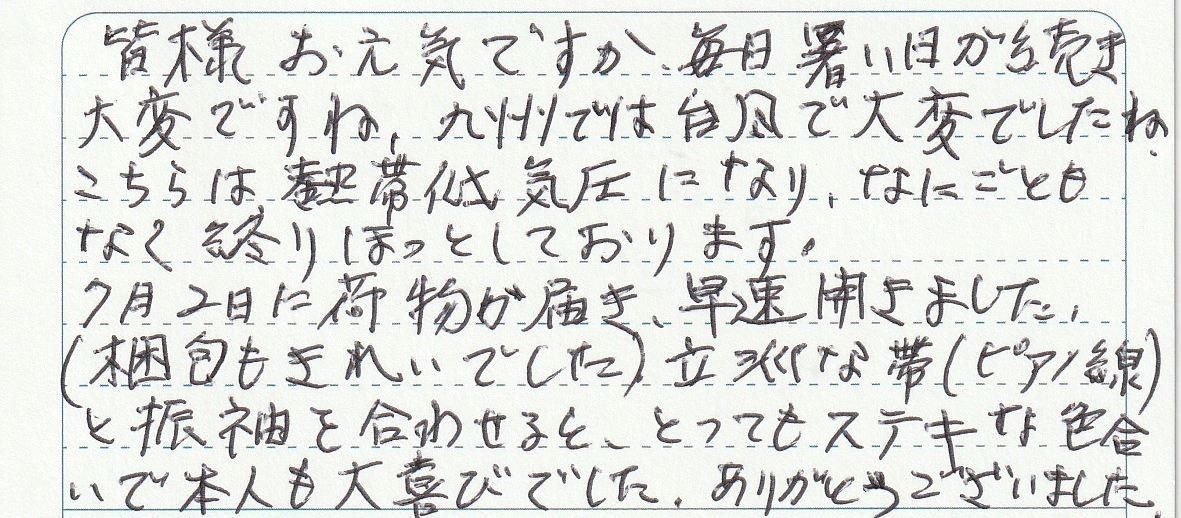 皆様 お元気ですか、毎日暑い日が続き
大変ですね、九州では台風で大変でしたね、
こちらは、熱帯低気圧になり、なにごとも
なく終りほっとしております。
7月2日に荷物が届き、早速開きました、
(梱包もきれいでした)立派な帯(ピアノ線)
と振袖を合わせると、とってもステキな色合
いで本人も大喜びでした、ありがとうございました、